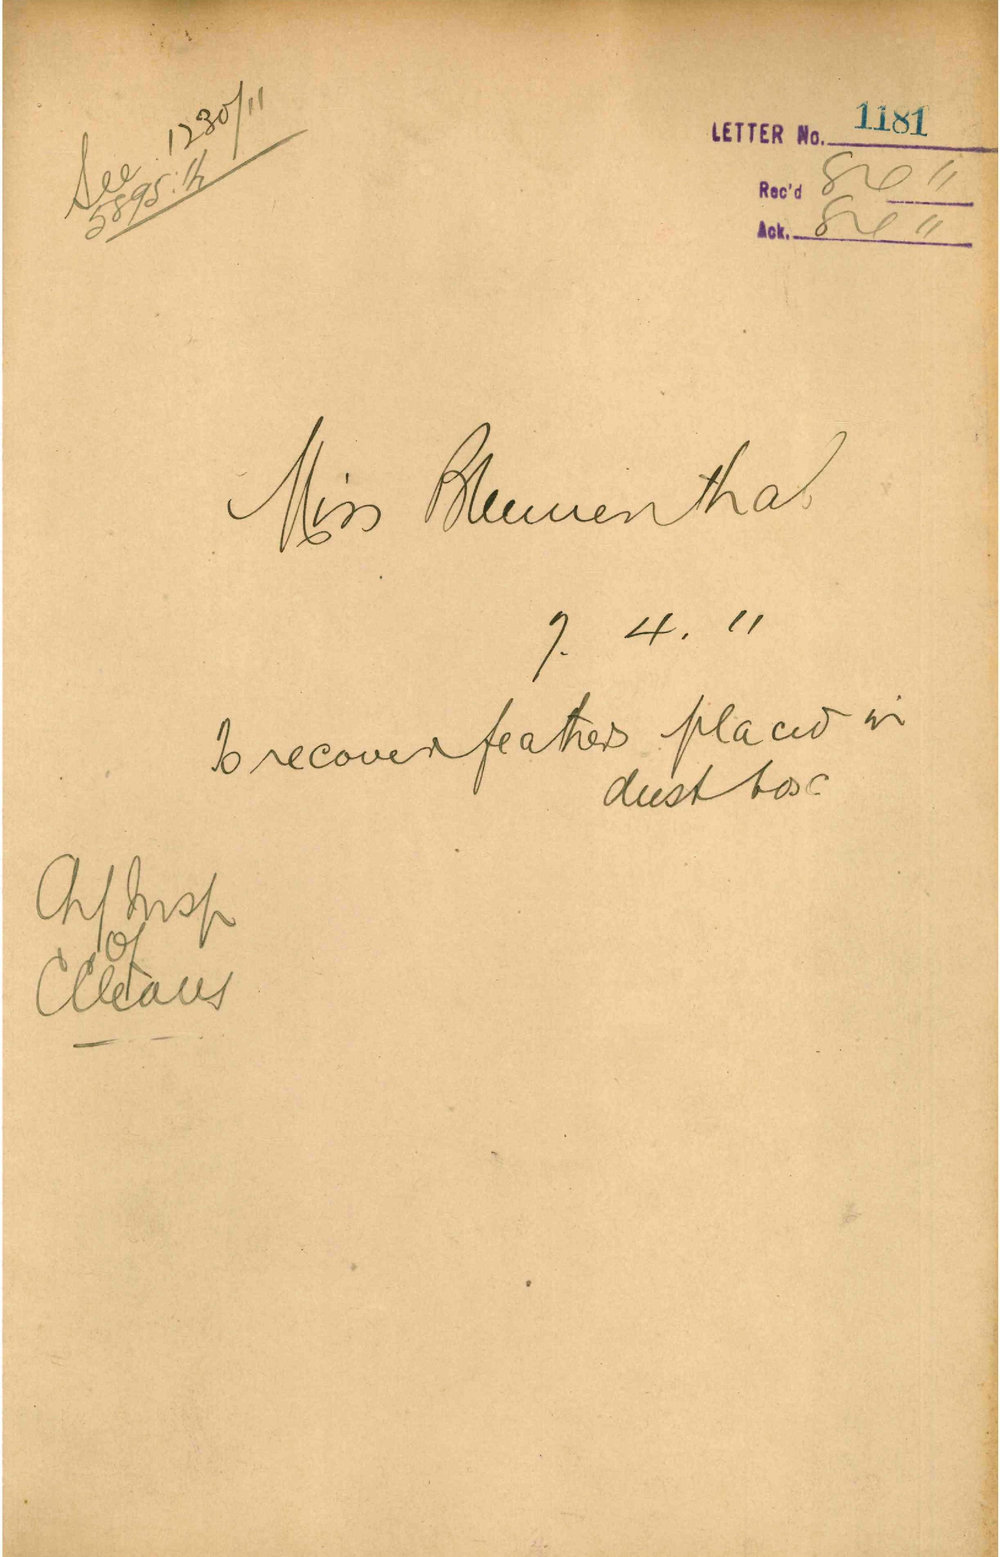 See 1230/11
5895.
LETTER No. 1181
Rec'd 8/4 11
Ack. 8/4 11
Miss Blumenthal
7. 4. 11
To recover feathers placed in
dust box
Chf Insp
of
Cleans